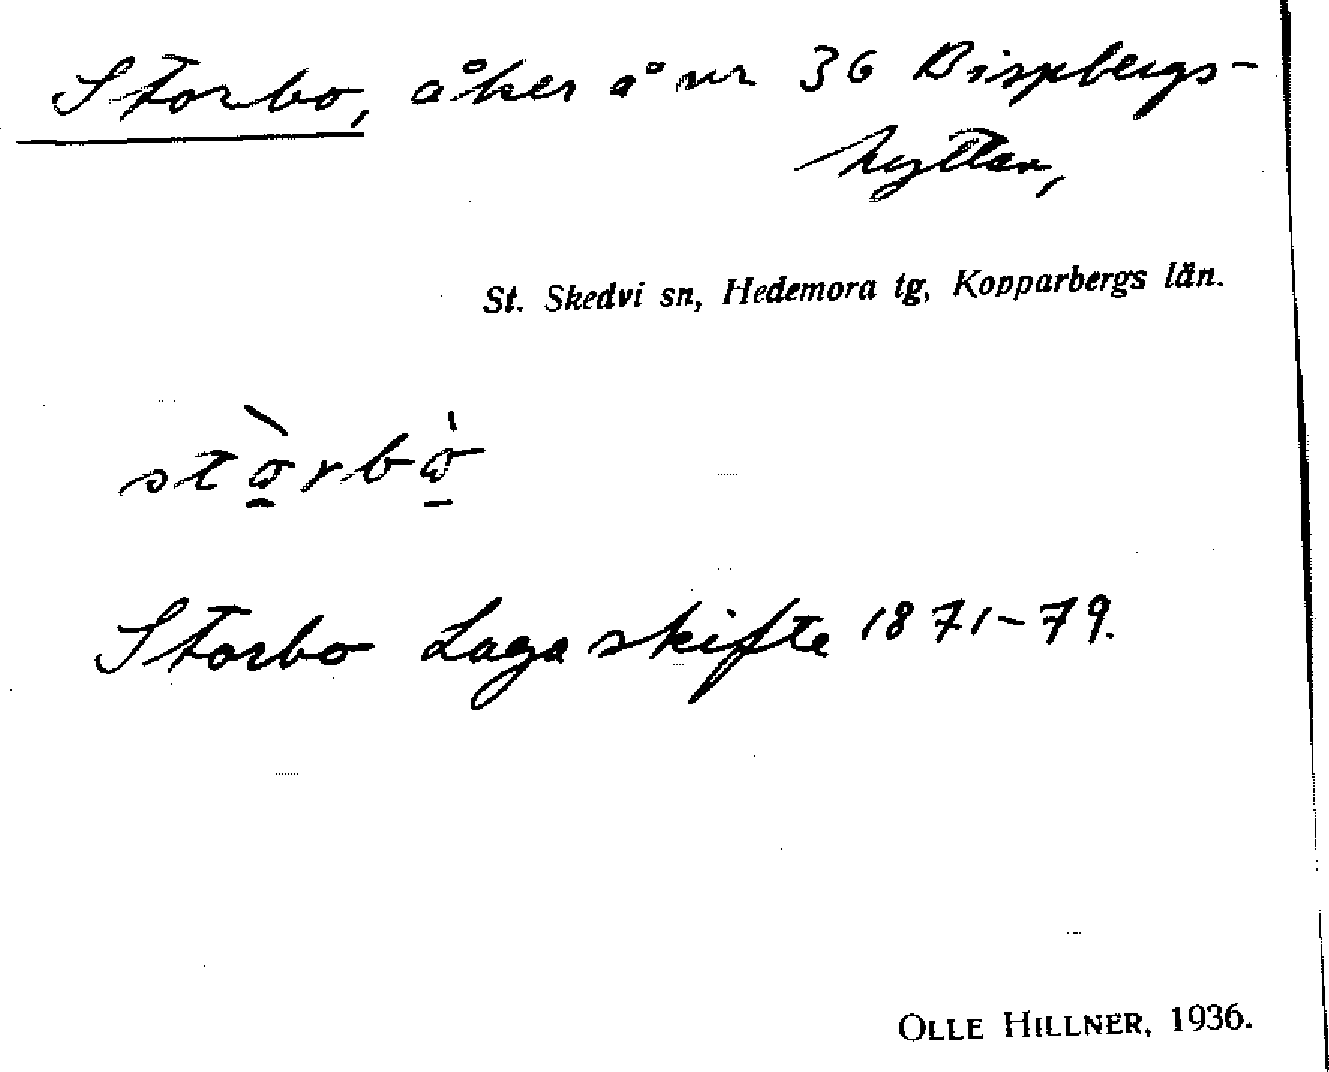 Storbo, åker å nr 36 Bispbergs-
hyttan,
St. Skedvi sn, Hedemora tg, Kopparbergs län.
stɷ̠̀rbɷ̠̀
Storbo Laga skifte 1871-79.
OLLE HILLNER, 1936.